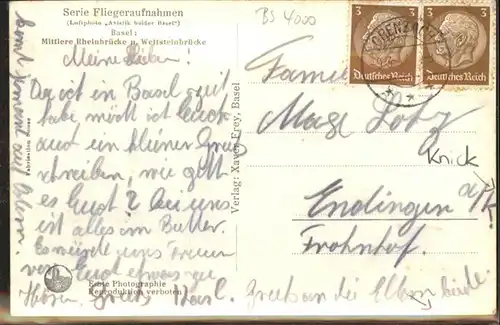 Serie Fliegeraufnahmen
(Luftphoto „Aviatik beider Basel“)
Basel:
Mittlere Rheinbrücke u. Wettsteinbrücke
BS 4000
Meine Lieben!
Da ich in Basel Zeit
habe möcht ich Euch
auch ein kleiner Gruß
schreiben, wie geht
es Euch? Bei uns
ist alles im Butter.
Es würde uns freuen
von Euch etwas zu
Hören. Gruß Karl. Gruß an die Eltern beide
kommt
Verlag: Xaver Frey, Basel
Echte Photographie
Reproduktion verboten
3 3
Deutsches Reich Deutsches Reich
Familie
Max Lotz
Knick
Endingen a/K.
Frohnhof.